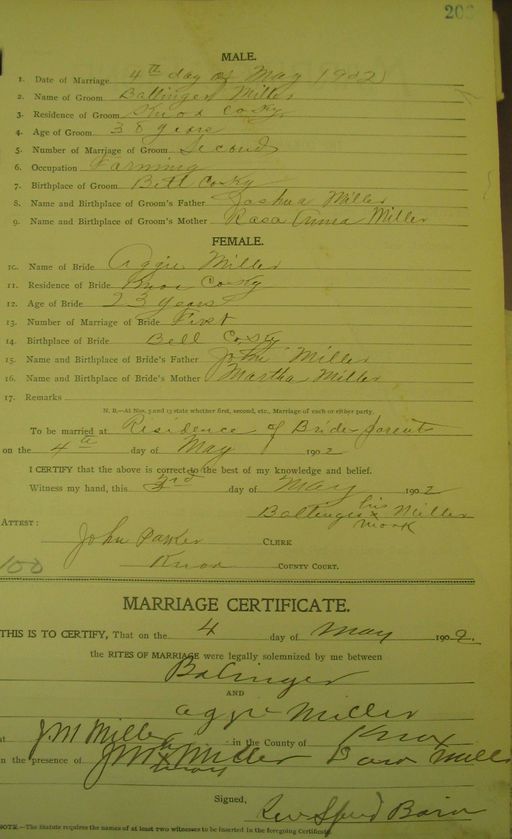 203
MALE.
1. Date of Marriage 4th day of May 1902
2. Name of Groom Ballinger Miller
3. Residence of Groom Knox Co Ky
4. Age of Groom 38 years
5. Number of Marriage of Groom Second
6. Occupation Farming
7. Birthplace of Groom Bell Co Ky
8. Name and Birthplace of Groom's Father Joshua Miller
9. Name and Birthplace of Groom's Mother Miller
FEMALE.
10. Name of Bride Aggie Miller
11. Residence of Bride Knox Co Ky
12. Age of Bride 23 years
13. Number of Marriage of Bride First
14. Birthplace of Bride Bell Co Ky
15. Name and Birthplace of Bride's Father John Miller
16. Name and Birthplace of Bride's Mother Martha Miller
17. Remarks
N. B.—At Nos. 5 and 13 state whether first, second, etc., Marriage of each or either party.
To be married at Residence of Brides parents
on the 4th day of May 1902
I CERTIFY that the above is correct to the best of my knowledge and belief.
Witness my hand, this 3rd day of May 1902
his
Ballinger x Miller
mark
ATTEST:
John Parker CLERK
100 Knox COUNTY COURT.
MARRIAGE CERTIFICATE.
THIS IS TO CERTIFY, That on the 4 day of May 1902.
the RITES OF MARRIAGE were legally solemnized by me between
Balinger
AND
Aggie Miller
at J M Miller in the County of Knox
in the presence of J M Miller
Signed,
Rev
NOTE.—The Statute requires the names of at least two witnesses to be inserted in the foregoing Certificate.